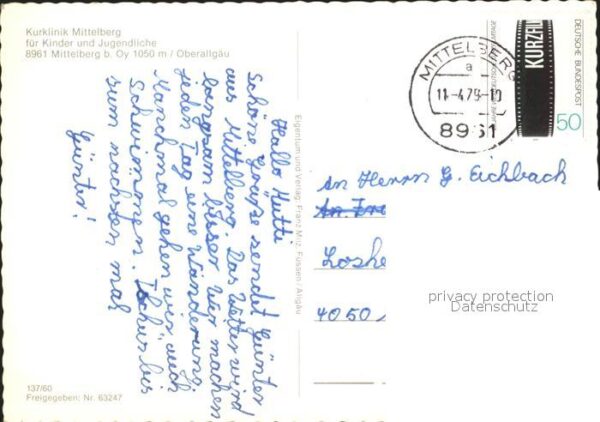 Kurklinik Mittelberg
für Kinder und Jugendliche
8961 Mittelberg b. Oy 1050 m / Oberallgäu
Hallo Mutti
Schöne Grüße sendet Günter
aus Mittelberg. Das Wetter wird
langsam besser. Wir machen
jeden Tag eine Wanderung.
Manchmal gehen wir auch
Schwimmen. Tschüs bis
zum nächsten mal
Günter!
137/60
Freigegeben: Nr. 63247
Eigentum und Verlag: Franz Milz, Füssen / Allgäu
MITTELBERG
a
11-4.79-10
8961
KURZFIL
DEUTSCHE BUNDESPOST
50
An Herrn G. Eichbach
An Fre
Loshe
4050
privacy protection
Datenschutz